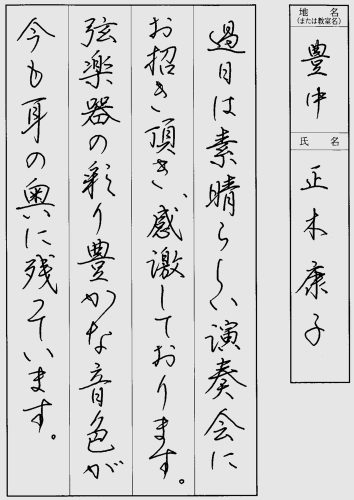 地名
(または教室名)
豊中
氏名
正木康子
過日は素晴らしい演奏会に
お招き頂き、感激しております。
弦楽器の彩り豊かな音色が
今も耳の奥に残っています。